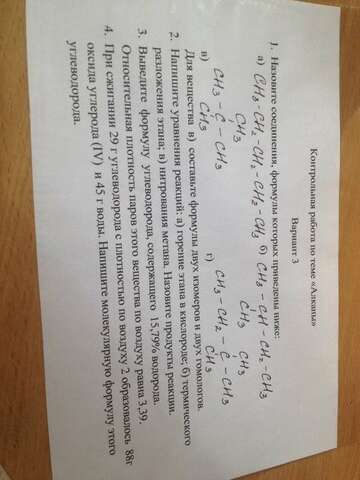 Контрольная работа по теме «Алканы»
Вариант 3
1. Назовите соединения, формулы которых приведены ниже:
а) CH3-CH2-CH2-CH2-CH3 б) CH3-CH-CH2-CH3
CH3 CH3 CH3
в) CH3-C-CH3 г) CH3-CH2-C-CH3
CH3 CH3
Для вещества в) составьте формулы двух изомеров и двух гомологов.
2. Напишите уравнения реакций: а) горение этана в кислороде; б) термического
разложения этана; в) нитрования метана. Назовите продукты реакции.
3. Выведите формулу углеводорода, содержащего 15,79% водорода.
Относительная плотность паров этого вещества по воздуху равна 3,39.
4. При сжигании 29 г углеводорода с плотностью по воздуху 2 образовалось 88г
оксида углерода (IV) и 45 г воды. Напишите молекулярную формулу этого
углеводорода.